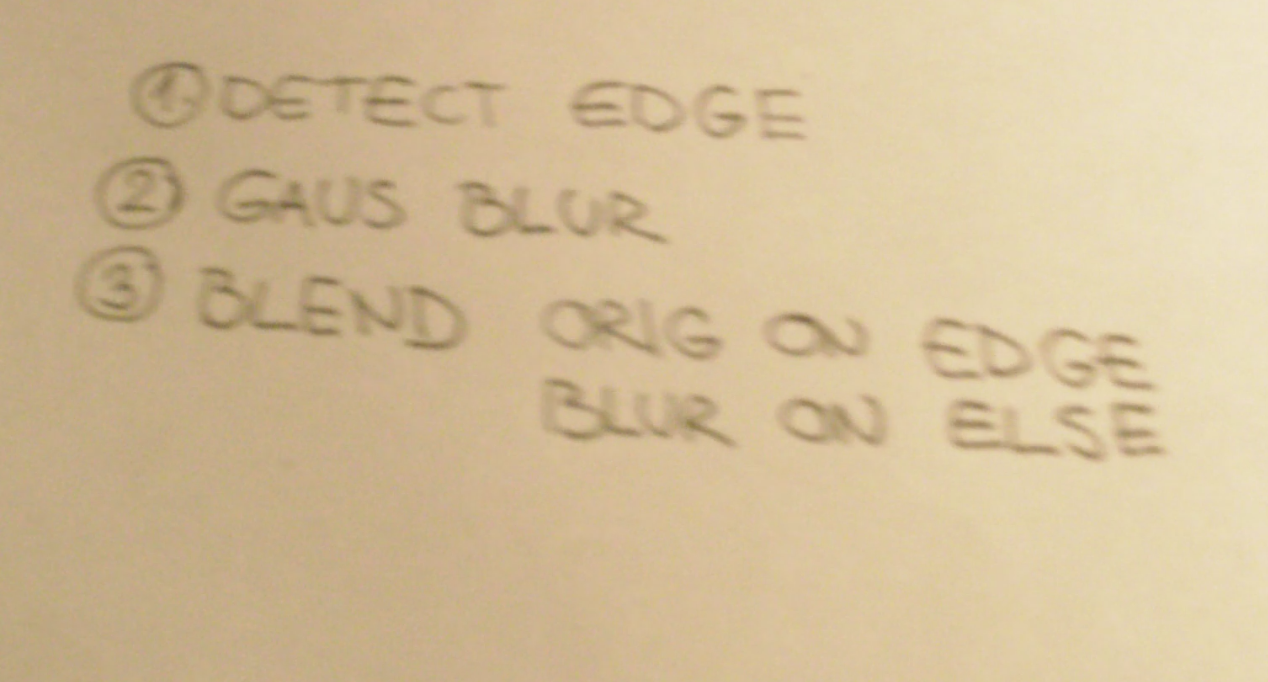 ① DETECT EDGE
② GAUS BLUR
③ BLEND ORIG ON EDGE
BLUR ON ELSE